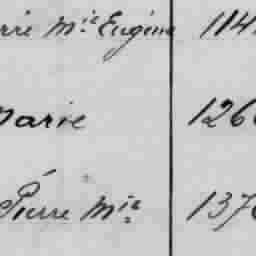 Mie Eugène 114
Marie 126
Pierre Mie 137